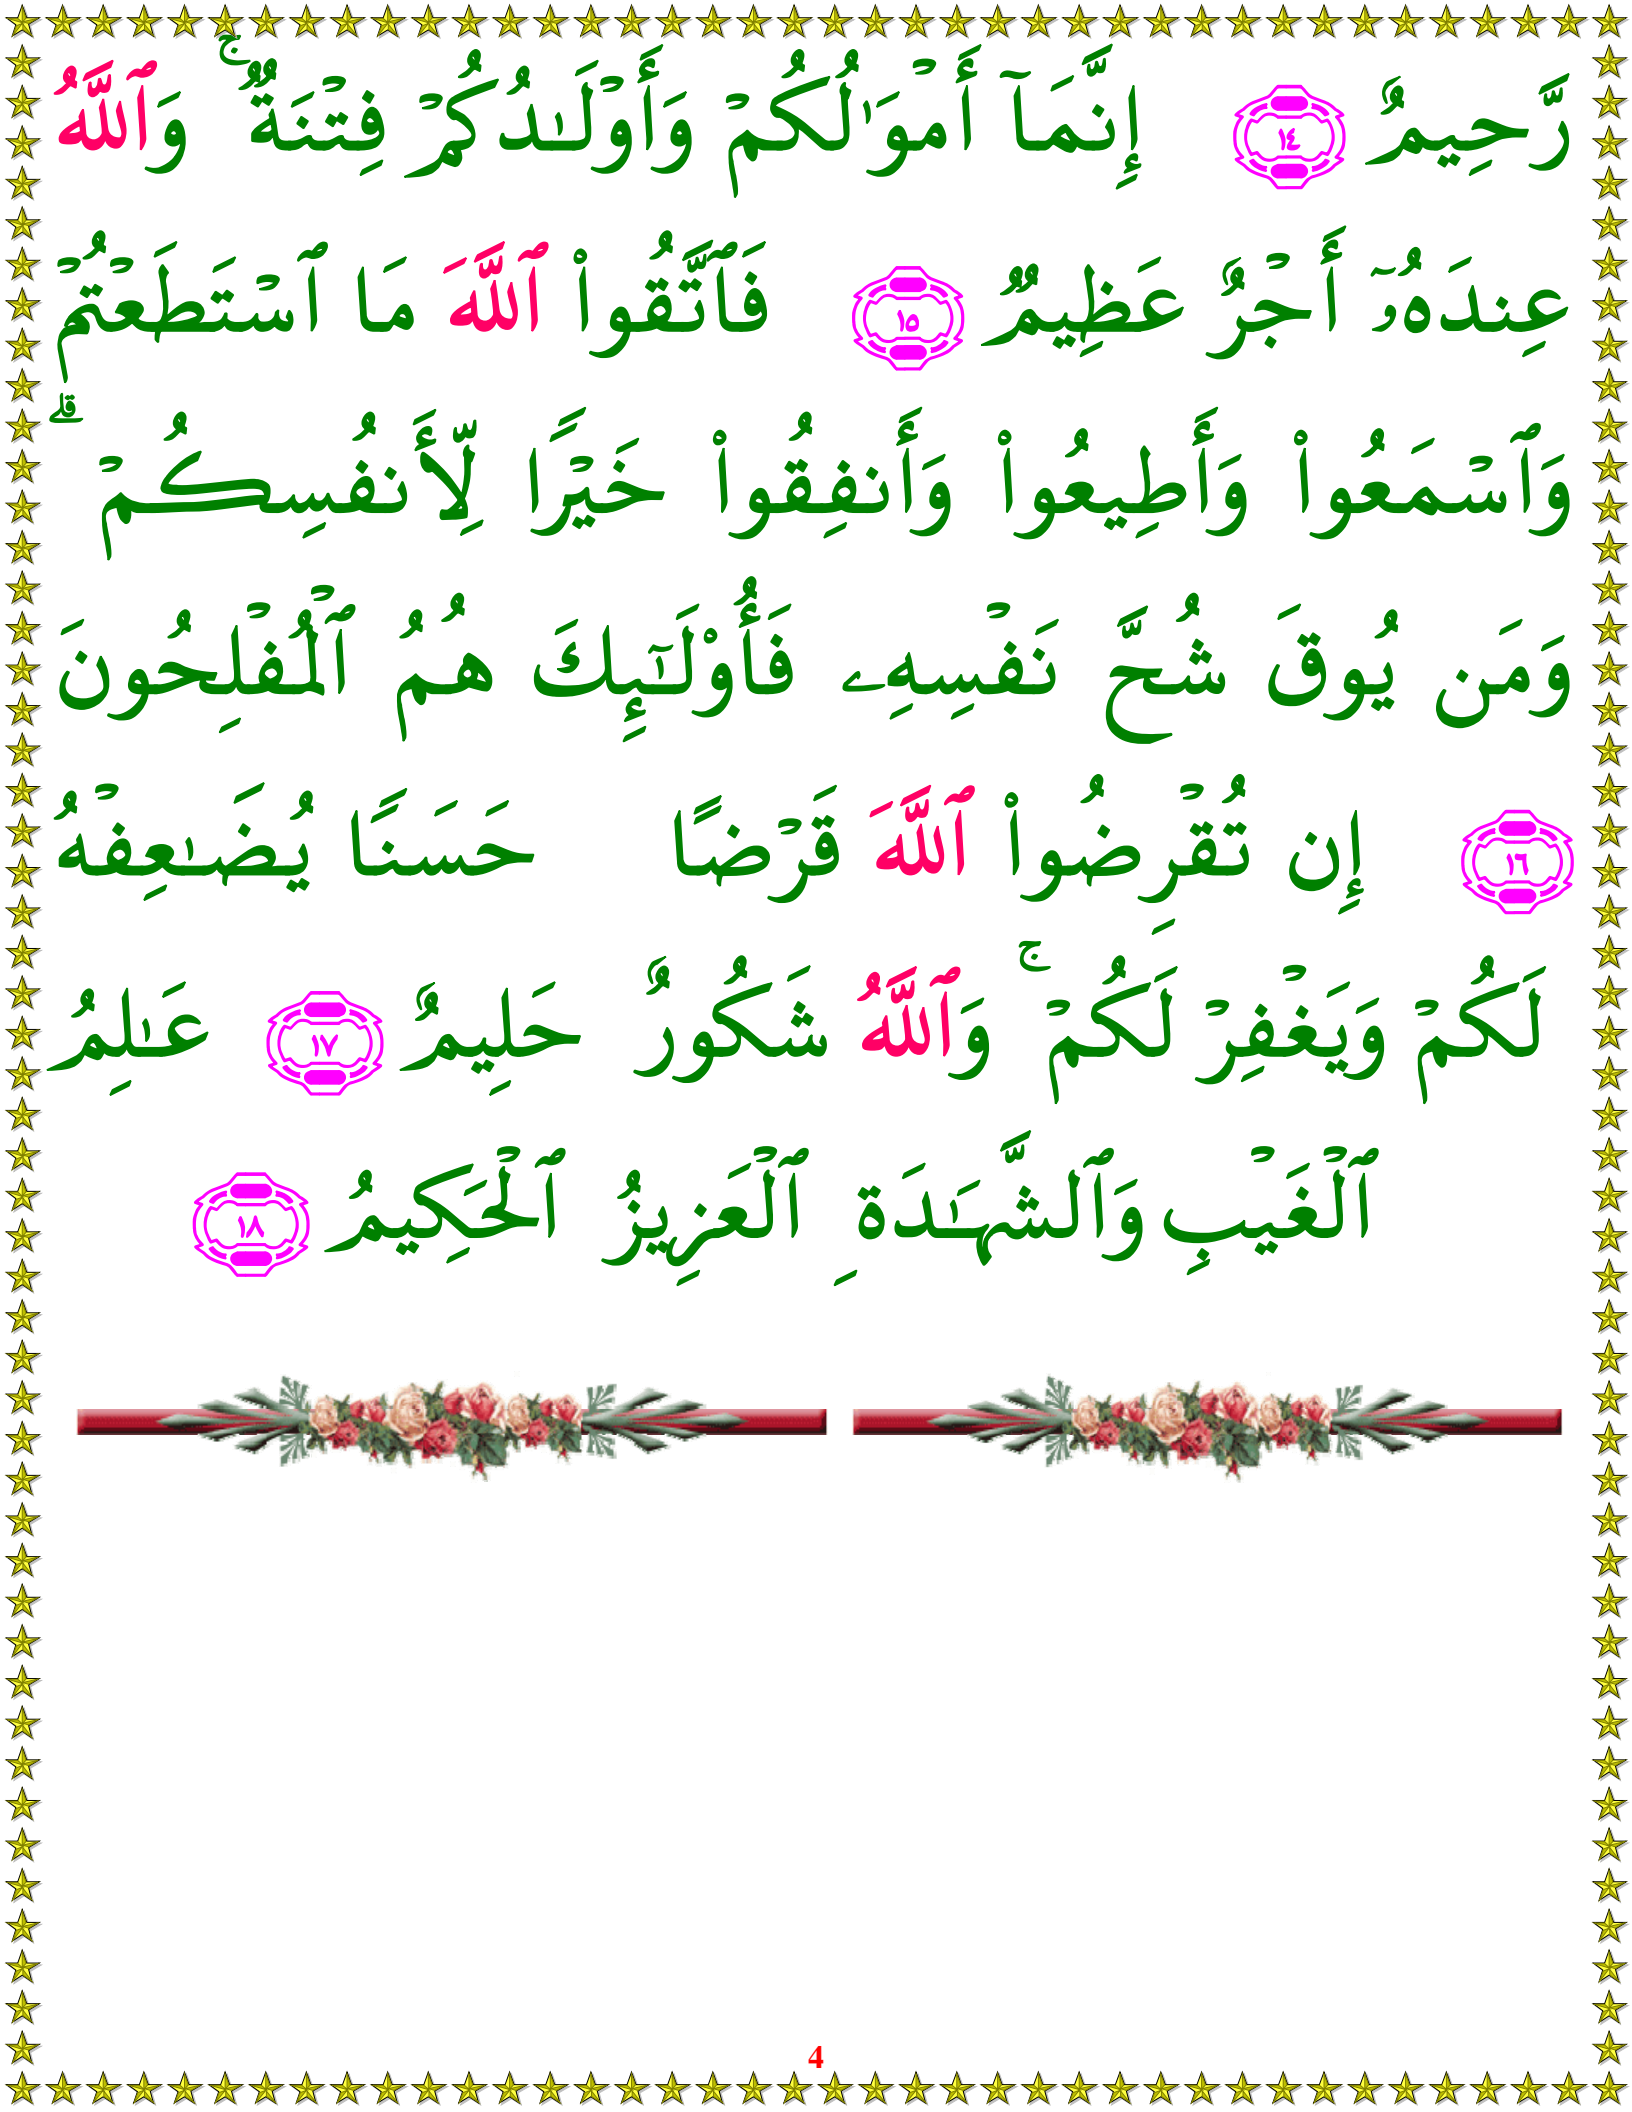 رَّحِيمٌ ١٤ إِنَّمَآ أَمۡوَٰلُكُمۡ وَأَوۡلَٰدُكُمۡ فِتۡنَةٞۚ وَٱللَّهُ
عِندَهُۥٓ أَجۡرٌ عَظِيمٞ ١٥ فَٱتَّقُواْ ٱللَّهَ مَا ٱسۡتَطَعۡتُمۡ
وَٱسۡمَعُواْ وَأَطِيعُواْ وَأَنفِقُواْ خَيۡرٗا لِّأَنفُسِكُمۡۗ
وَمَن يُوقَ شُحَّ نَفۡسِهِۦ فَأُوْلَٰٓئِكَ هُمُ ٱلۡمُفۡلِحُونَ
١٦ إِن تُقۡرِضُواْ ٱللَّهَ قَرۡضًا حَسَنٗا يُضَٰعِفۡهُ
لَكُمۡ وَيَغۡفِرۡ لَكُمۡۚ وَٱللَّهُ شَكُورٌ حَلِيمٌ ١٧ عَٰلِمُ
ٱلۡغَيۡبِ وَٱلشَّهَٰدَةِ ٱلۡعَزِيزُ ٱلۡحَكِيمُ ١٨
4